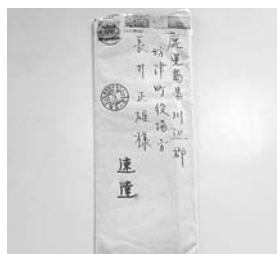 鹿児島県川辺郡
坊津町役場方
長井正雄様
速達